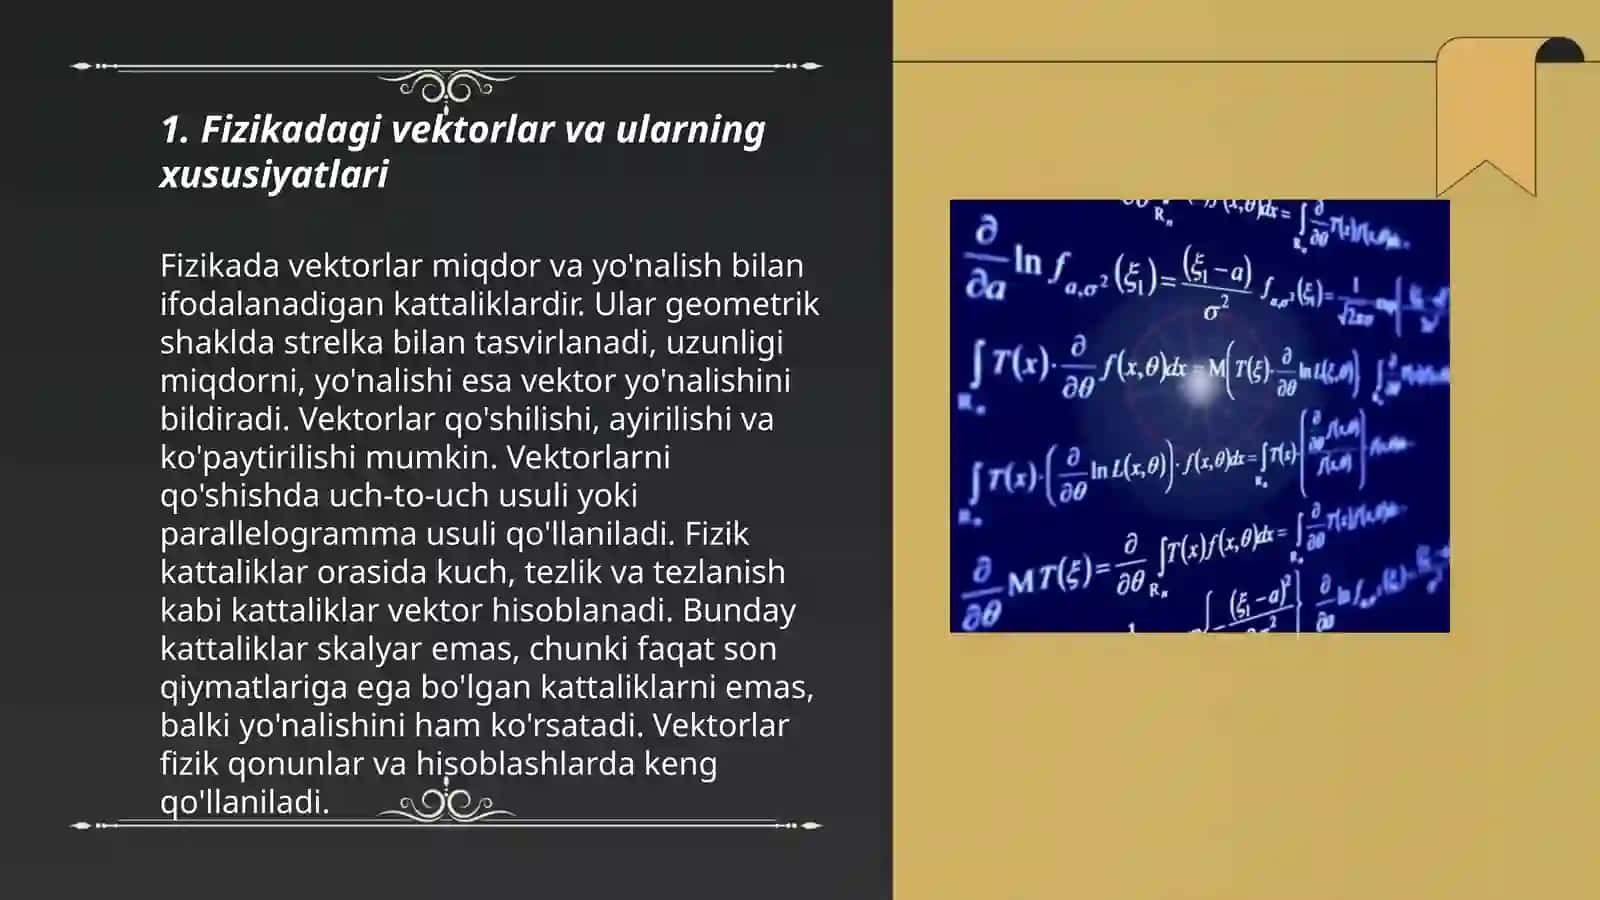 1. Fizikadagi vektorlar va ularning
xususiyatlari
Fizikada vektorlar miqdor va yo'nalish bilan
ifodalanadigan kattaliklardir. Ular geometrik
shaklda strelka bilan tasvirlanadi, uzunligi
miqdorni, yo'nalishi esa vektor yo'nalishini
bildiradi. Vektorlar qo'shilishi, ayirilishi va
ko'paytirilishi mumkin. Vektorlarni
qo'shishda uch-to-uch usuli yoki
parallelogramma usuli qo'llaniladi. Fizik
kattaliklar orasida kuch, tezlik va tezlanish
kabi kattaliklar vektor hisoblanadi. Bunday
kattaliklar skalyar emas, chunki faqat son
qiymatlariga ega bo'lgan kattaliklarni emas,
balki yo'nalishini ham ko'rsatadi. Vektorlar
fizik qonunlar va hisoblashlarda keng
qo'llaniladi.
∂/∂a ln f a,σ² (ξ₁) = (ξ₁ − a)/σ² f a,σ² (ξ₁) =
∫ T(x) · ∂/∂θ f(x,θ)dx = M( T(ξ) · ∂/∂θ ln L(ξ,θ) )
∫ T(x) · ( ∂/∂θ ln L(x,θ) ) · f(x,θ)dx = ∫ T(x) ·
∂/∂θ M T(ξ) = ∂/∂θ ∫ T(x) f(x,θ)dx = ∫ ∂/∂θ